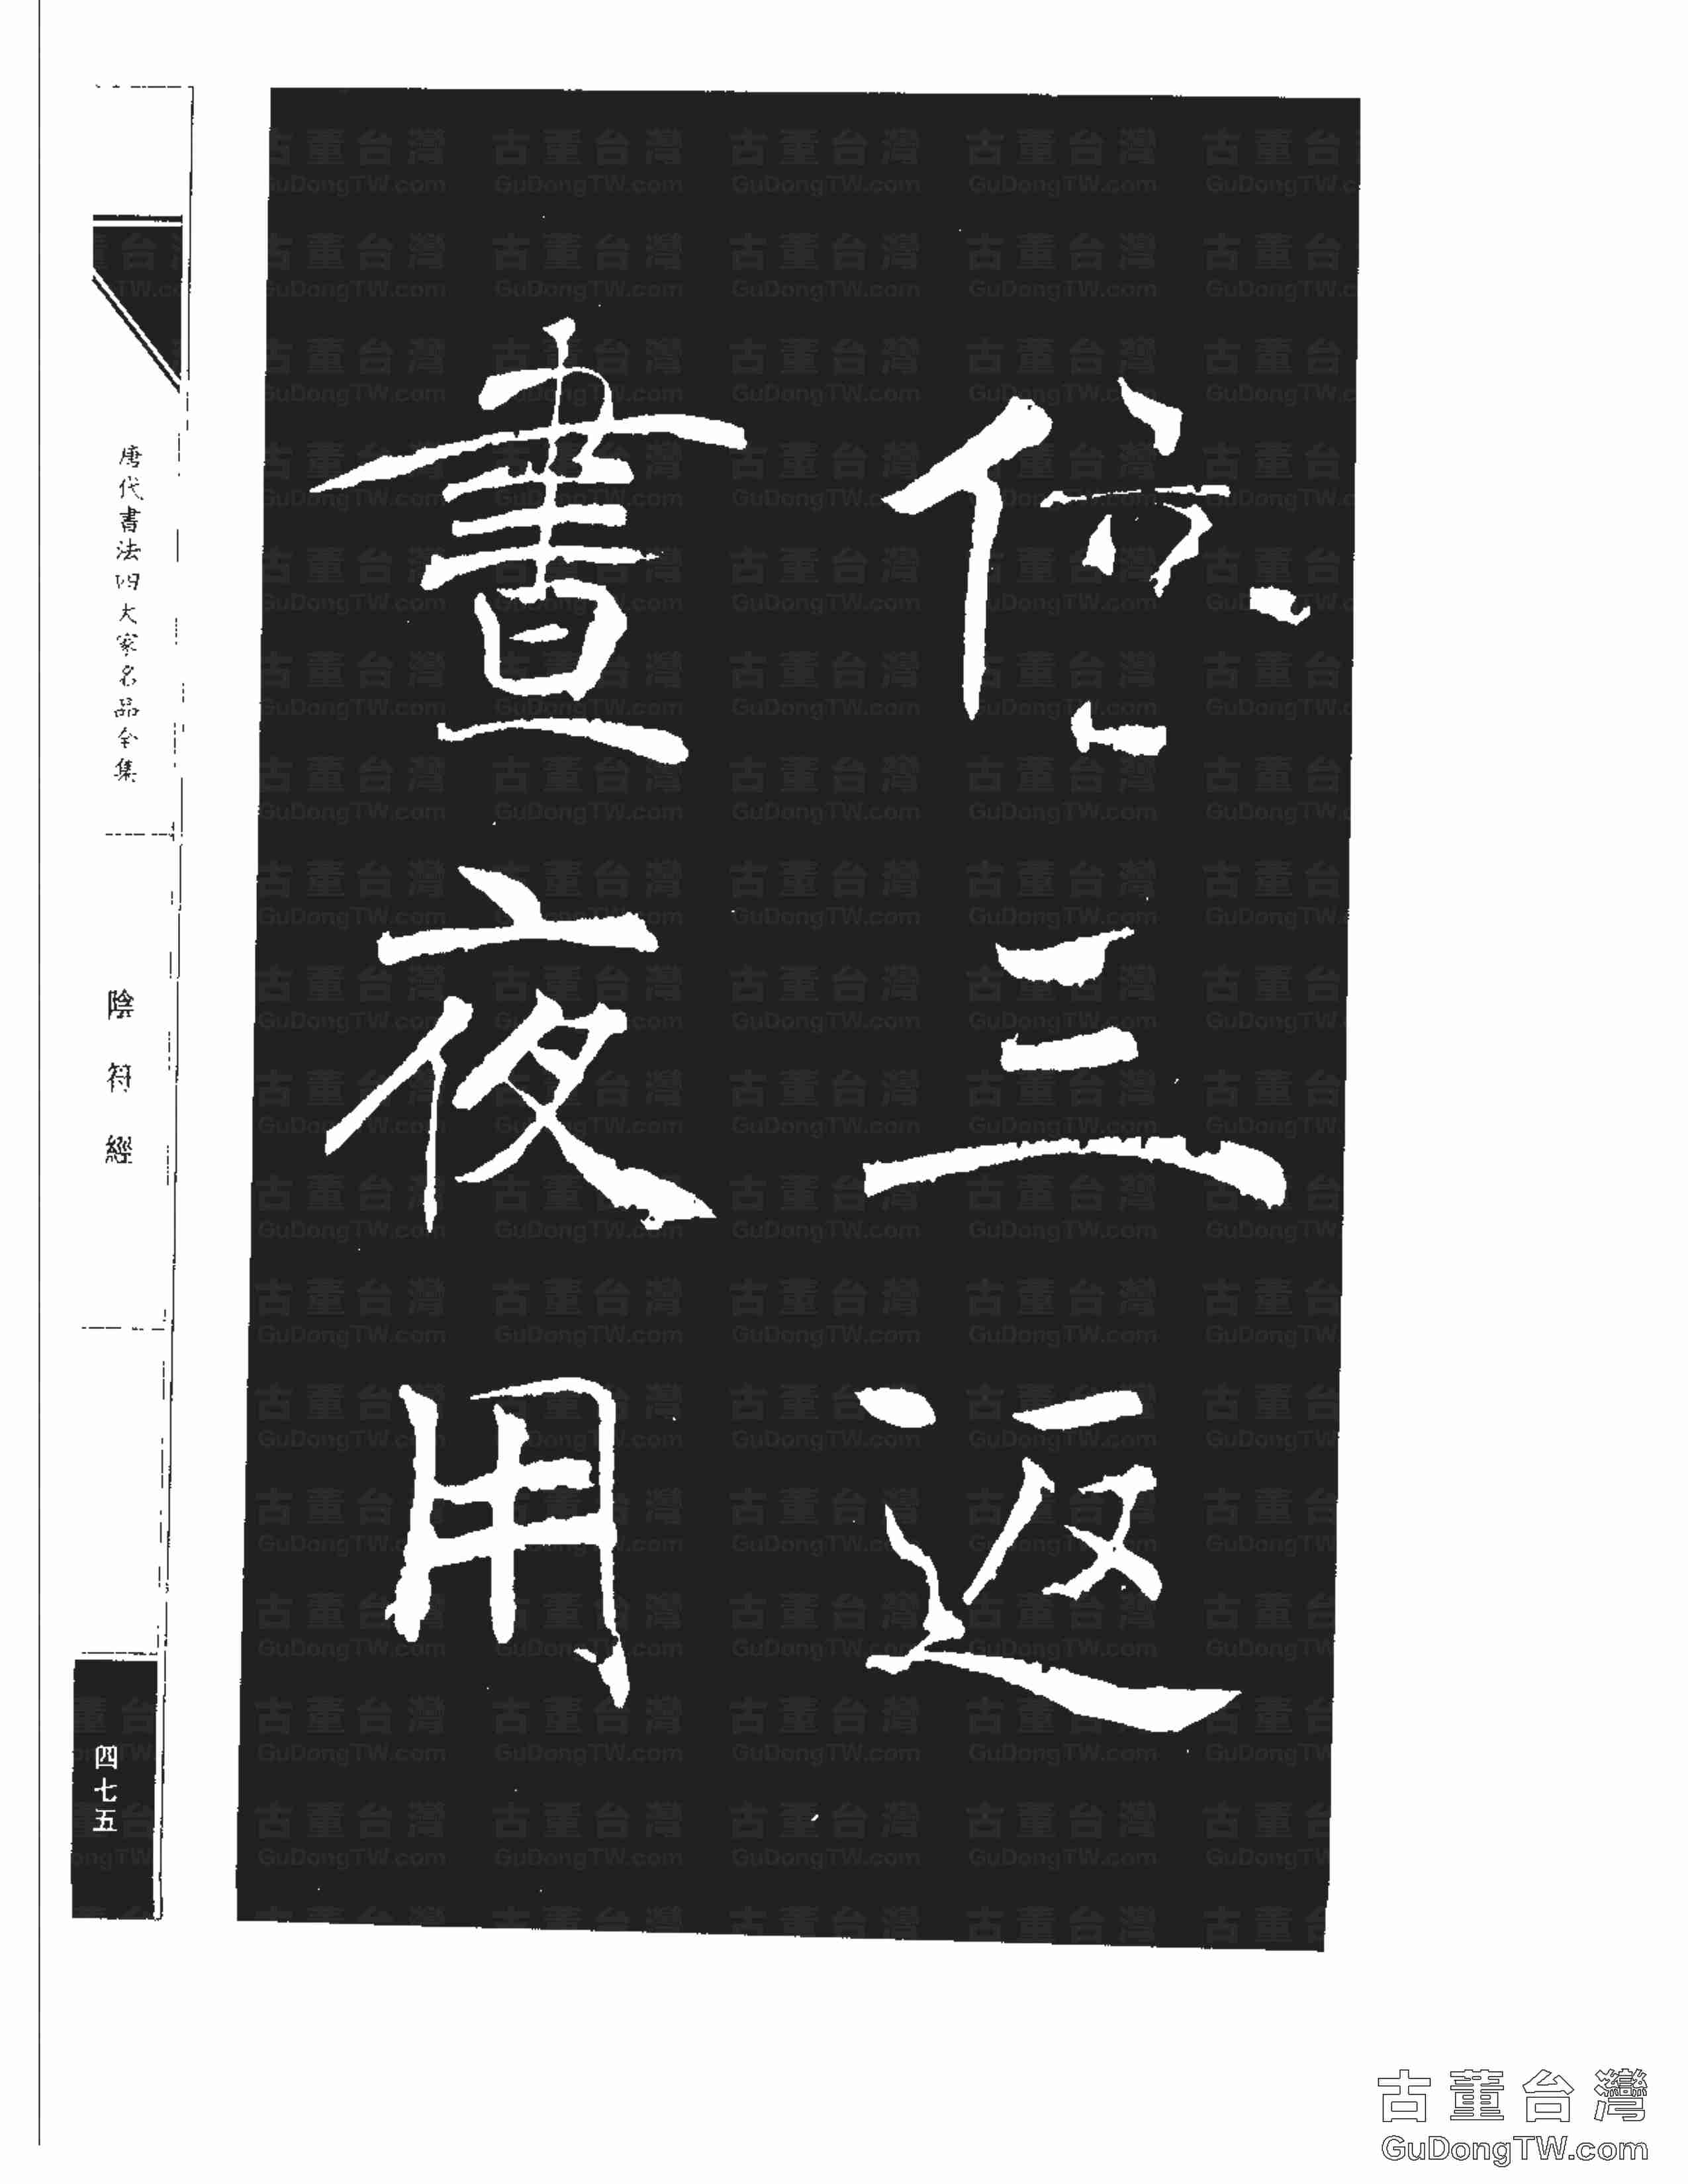 倍三返
晝夜用
唐代書法四大家名品全集
陰符經
四七五
古董台灣
GuDongTW.com